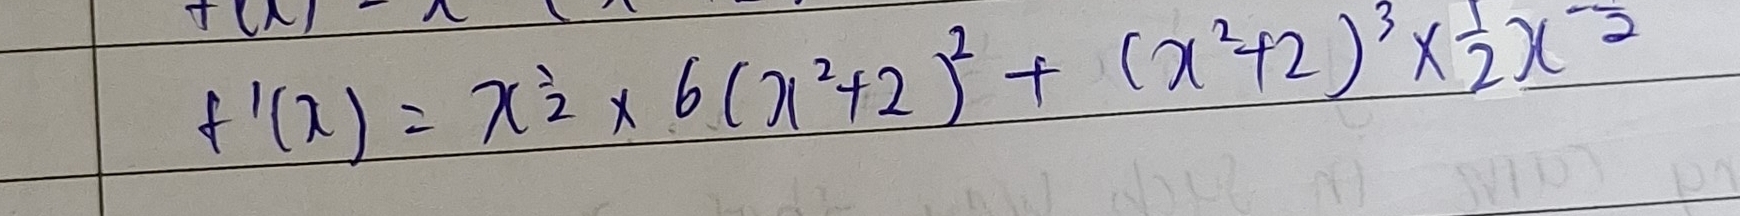 f'(x) = x^{1/2} × 6(x²+2)² + (x²+2)³ × 1/2 x^{-1/2}